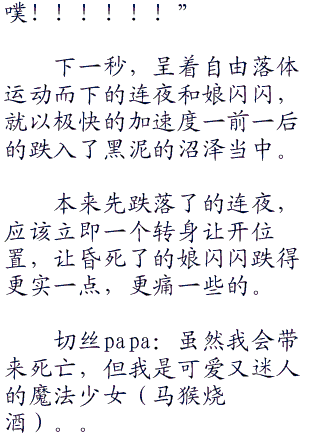 噗！！！！！！”
下一秒，呈着自由落体
运动而下的连夜和娘闪闪，
就以极快的加速度一前一后
的跌入了黑泥的沼泽当中。
本来先跌落了的连夜，
应该立即一个转身让开位
置，让昏死了的娘闪闪跌得
更实一点，更痛一些的。
切丝papa：虽然我会带
来死亡，但我是可爱又迷人
的魔法少女（马猴烧
酒）。。